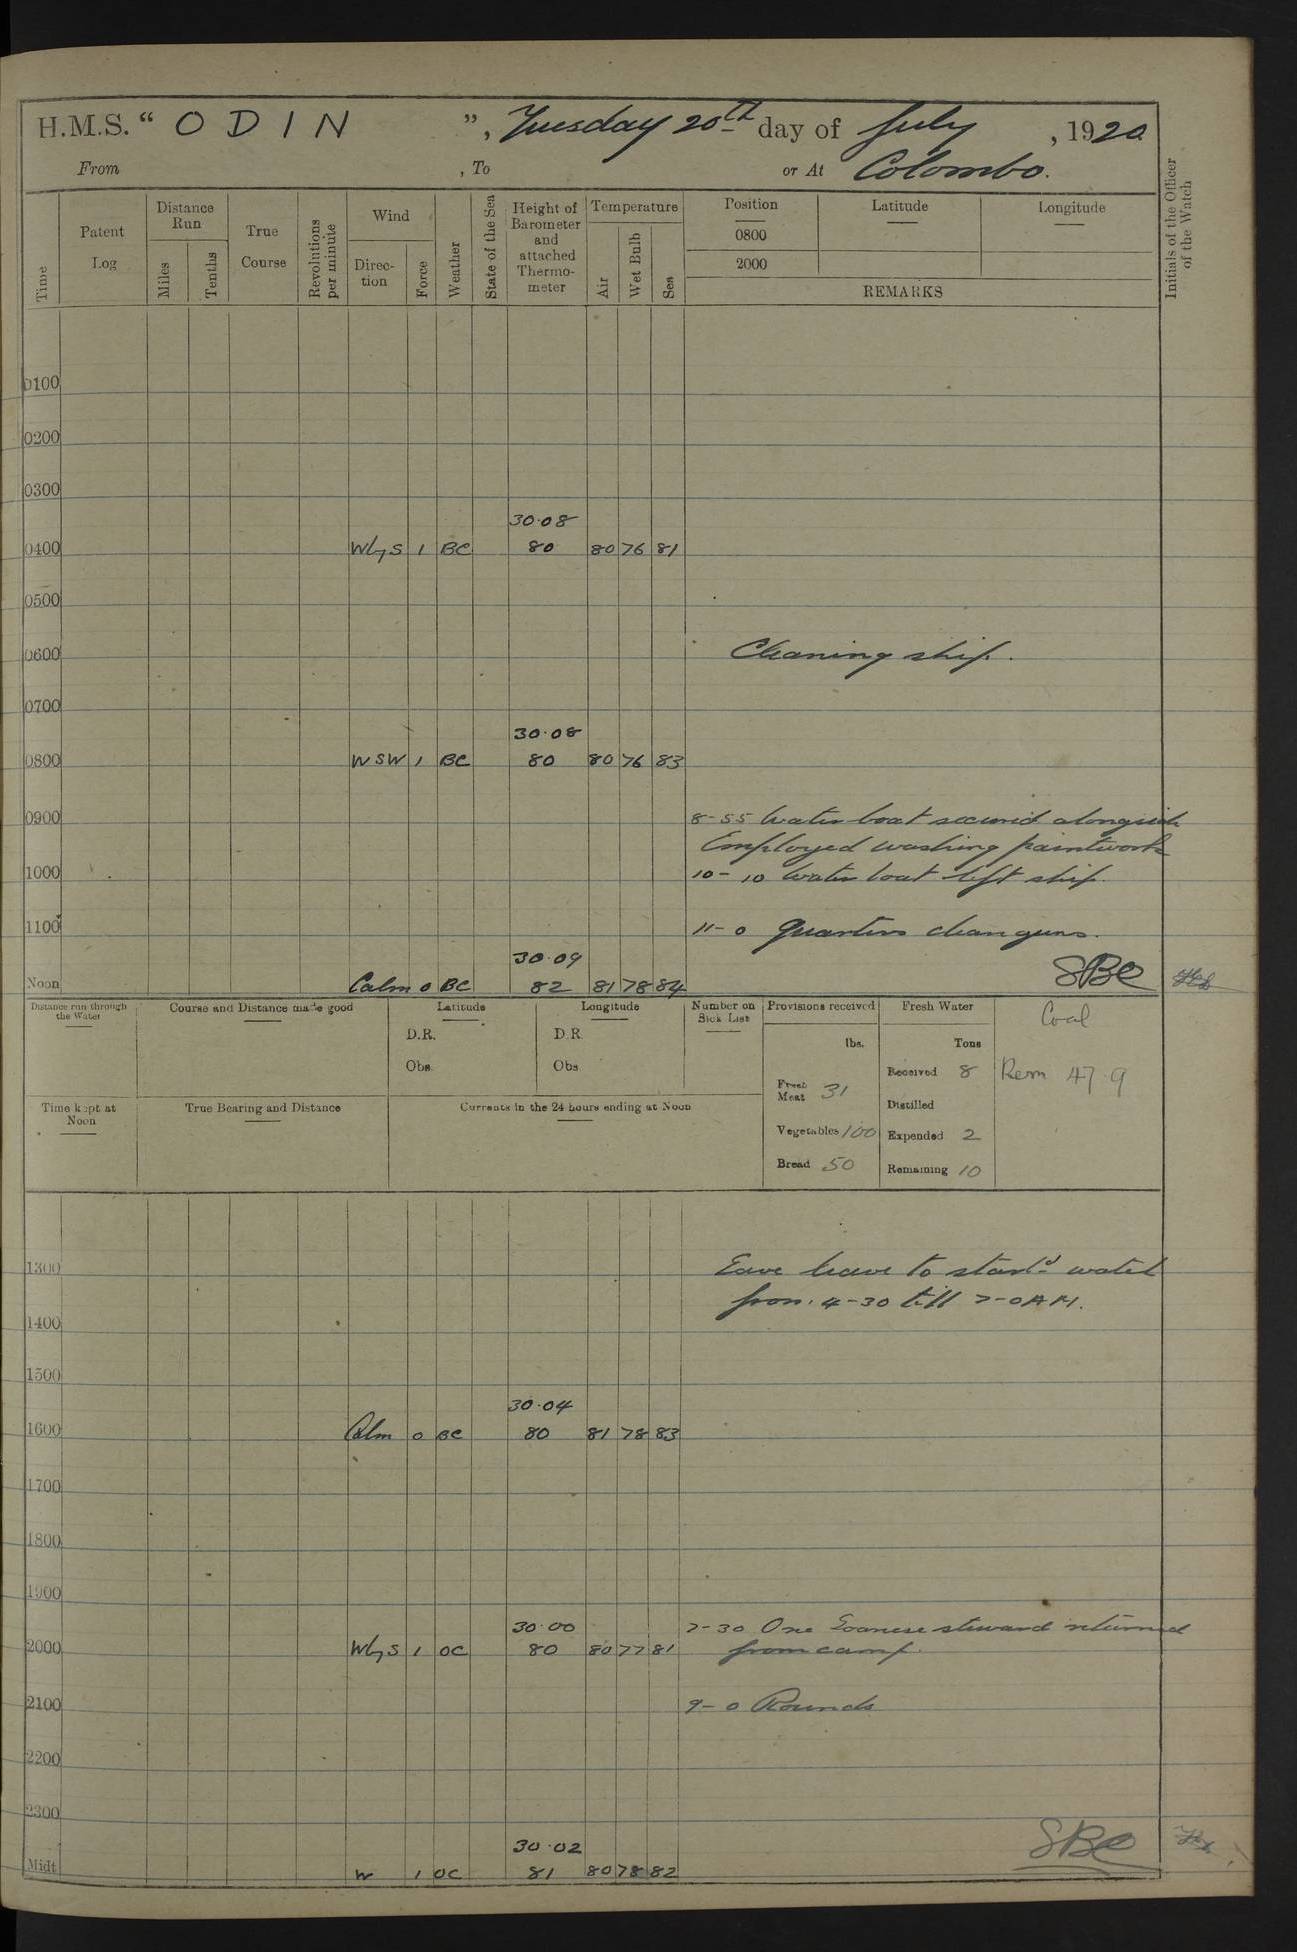 H.M.S. “ O D I N ”, Tuesday 20th day of July, 1920.
From , To or At Colombo.
Time
Patent Log
Distance Run
Miles
Tenths
True Course
Revolutions per minute
Wind
Direc-tion
Force
Weather
State of the Sea
Height of Barometer and attached Thermo-meter
Temperature
Air
Wet Bulb
Sea
Position Latitude Longitude
0800
2000
REMARKS
Initials of the Officer of the Watch
0100
0200
0300
30.08
0400 WbyS 1 BC 80 80 76 81
0500
0600 Cleaning ship.
0700
30.08
0800 WSW 1 BC 80 80 76 83
0900 8-55 Water boat secured alongside
Employed washing paintwork
1000 10-10 Water boat left ship.
1100 11-0 Quarters clean guns.
30.09
Noon Calm 0 BC 82 81 78 84 SBC
Distance run through the Water
Course and Distance made good
Latitude
D.R.
Obs.
Longitude
D.R.
Obs
Number on Sick List
Provisions received
lbs.
Fresh Meat 31
Vegetables 100
Bread 50
Fresh Water
Tons
Received 8
Distilled
Expended 2
Remaining 10
Coal
Rem 47.9
Time kept at Noon
True Bearing and Distance
Currents in the 24 hours ending at Noon
1300 Gave leave to starbd watch
from 4-30 till 7-0 AM.
1400
1500
30.04
1600 Calm 0 BC 80 81 78 83
1700
1800
1900
30.00 7-30 One Goanese steward returned
2000 WbyS 1 OC 80 80 77 81 from camp.
2100 9-0 Rounds
2200
2300
30.02 SBC
Midt W 1 OC 81 80 78 82